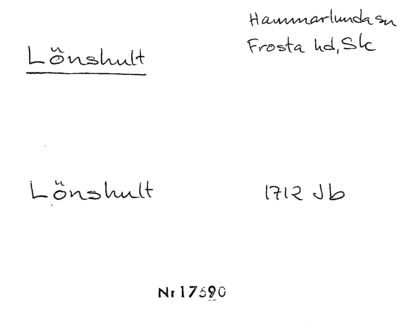 Lönshult
Hammarlunda sn
Frosta hd, Sk
Lönshult 1712 Jb
Nr 17590